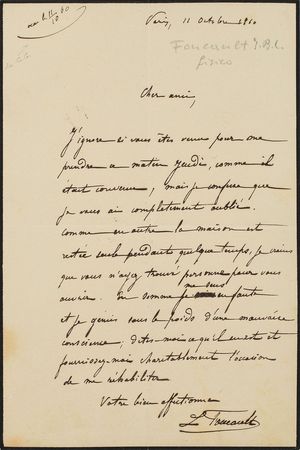 11/10 60
Paris, 11 Octobre 1860
Foucault J.B.L.
fisico
Cher ami,
J'ignore si vous êtes venu pour me
prendre ce matin Jeudi, comme il
était convenu; mais je confesse que
je vous ai complètement oublié.
comme en outre la maison est
restée seule pendant quelque temps, je crains
que vous n'ayez trouvé personne pour vous
ouvrir. En somme je me sens en faute
et je gémis sous le poids d'une mauvaise
conscience; dites-moi ce qu'il en est et
fournissez-moi charitablement l'occasion
de me réhabiliter
Votre bien affectionné
L. Foucault